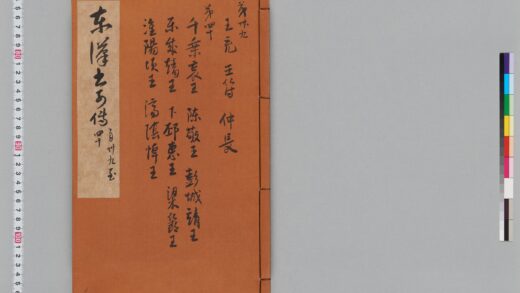 第卅九
王充 王符 仲長
第四十
千乘哀王 陳敬王 彭城靖王
樂成靖王 下邳惠王 梁節王
淮陽頃王 濟陰悼王
東漢書列傳 自卅九至四十